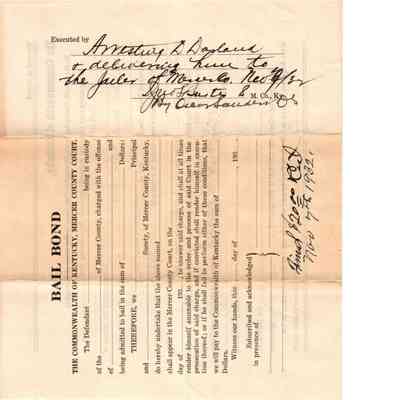 Executed by Arresting
& delivering him to
the Jailer of Mercer Co. Nov
M. Co., Ky.
BAIL BOND
THE COMMONWEALTH OF KENTUCKY, MERCER COUNTY COURT.
The Defendant being in custody
of the of Mercer County, charged with the offense
of and
being admitted to bail in the sum of Dollars:
THEREFORE, we Principal
and Surety, of Mercer County, Kentucky,
do hereby undertake that the above named
shall appear in the Mercer County Court, on the
day of 193 , to answer said charge, and shall at all times
render himself amenable to the order and process of said Court in the
prosecution of said charge, and if convicted shall render himself in execu-
tion thereof; or if he shall fail to perform either of these conditions, that
we will pay to the Commonwealth of Kentucky the sum of
Dollars.
Witness our hands, this day of 193
Subscribed and acknowledged
in presence of
Nov 7th 1932.